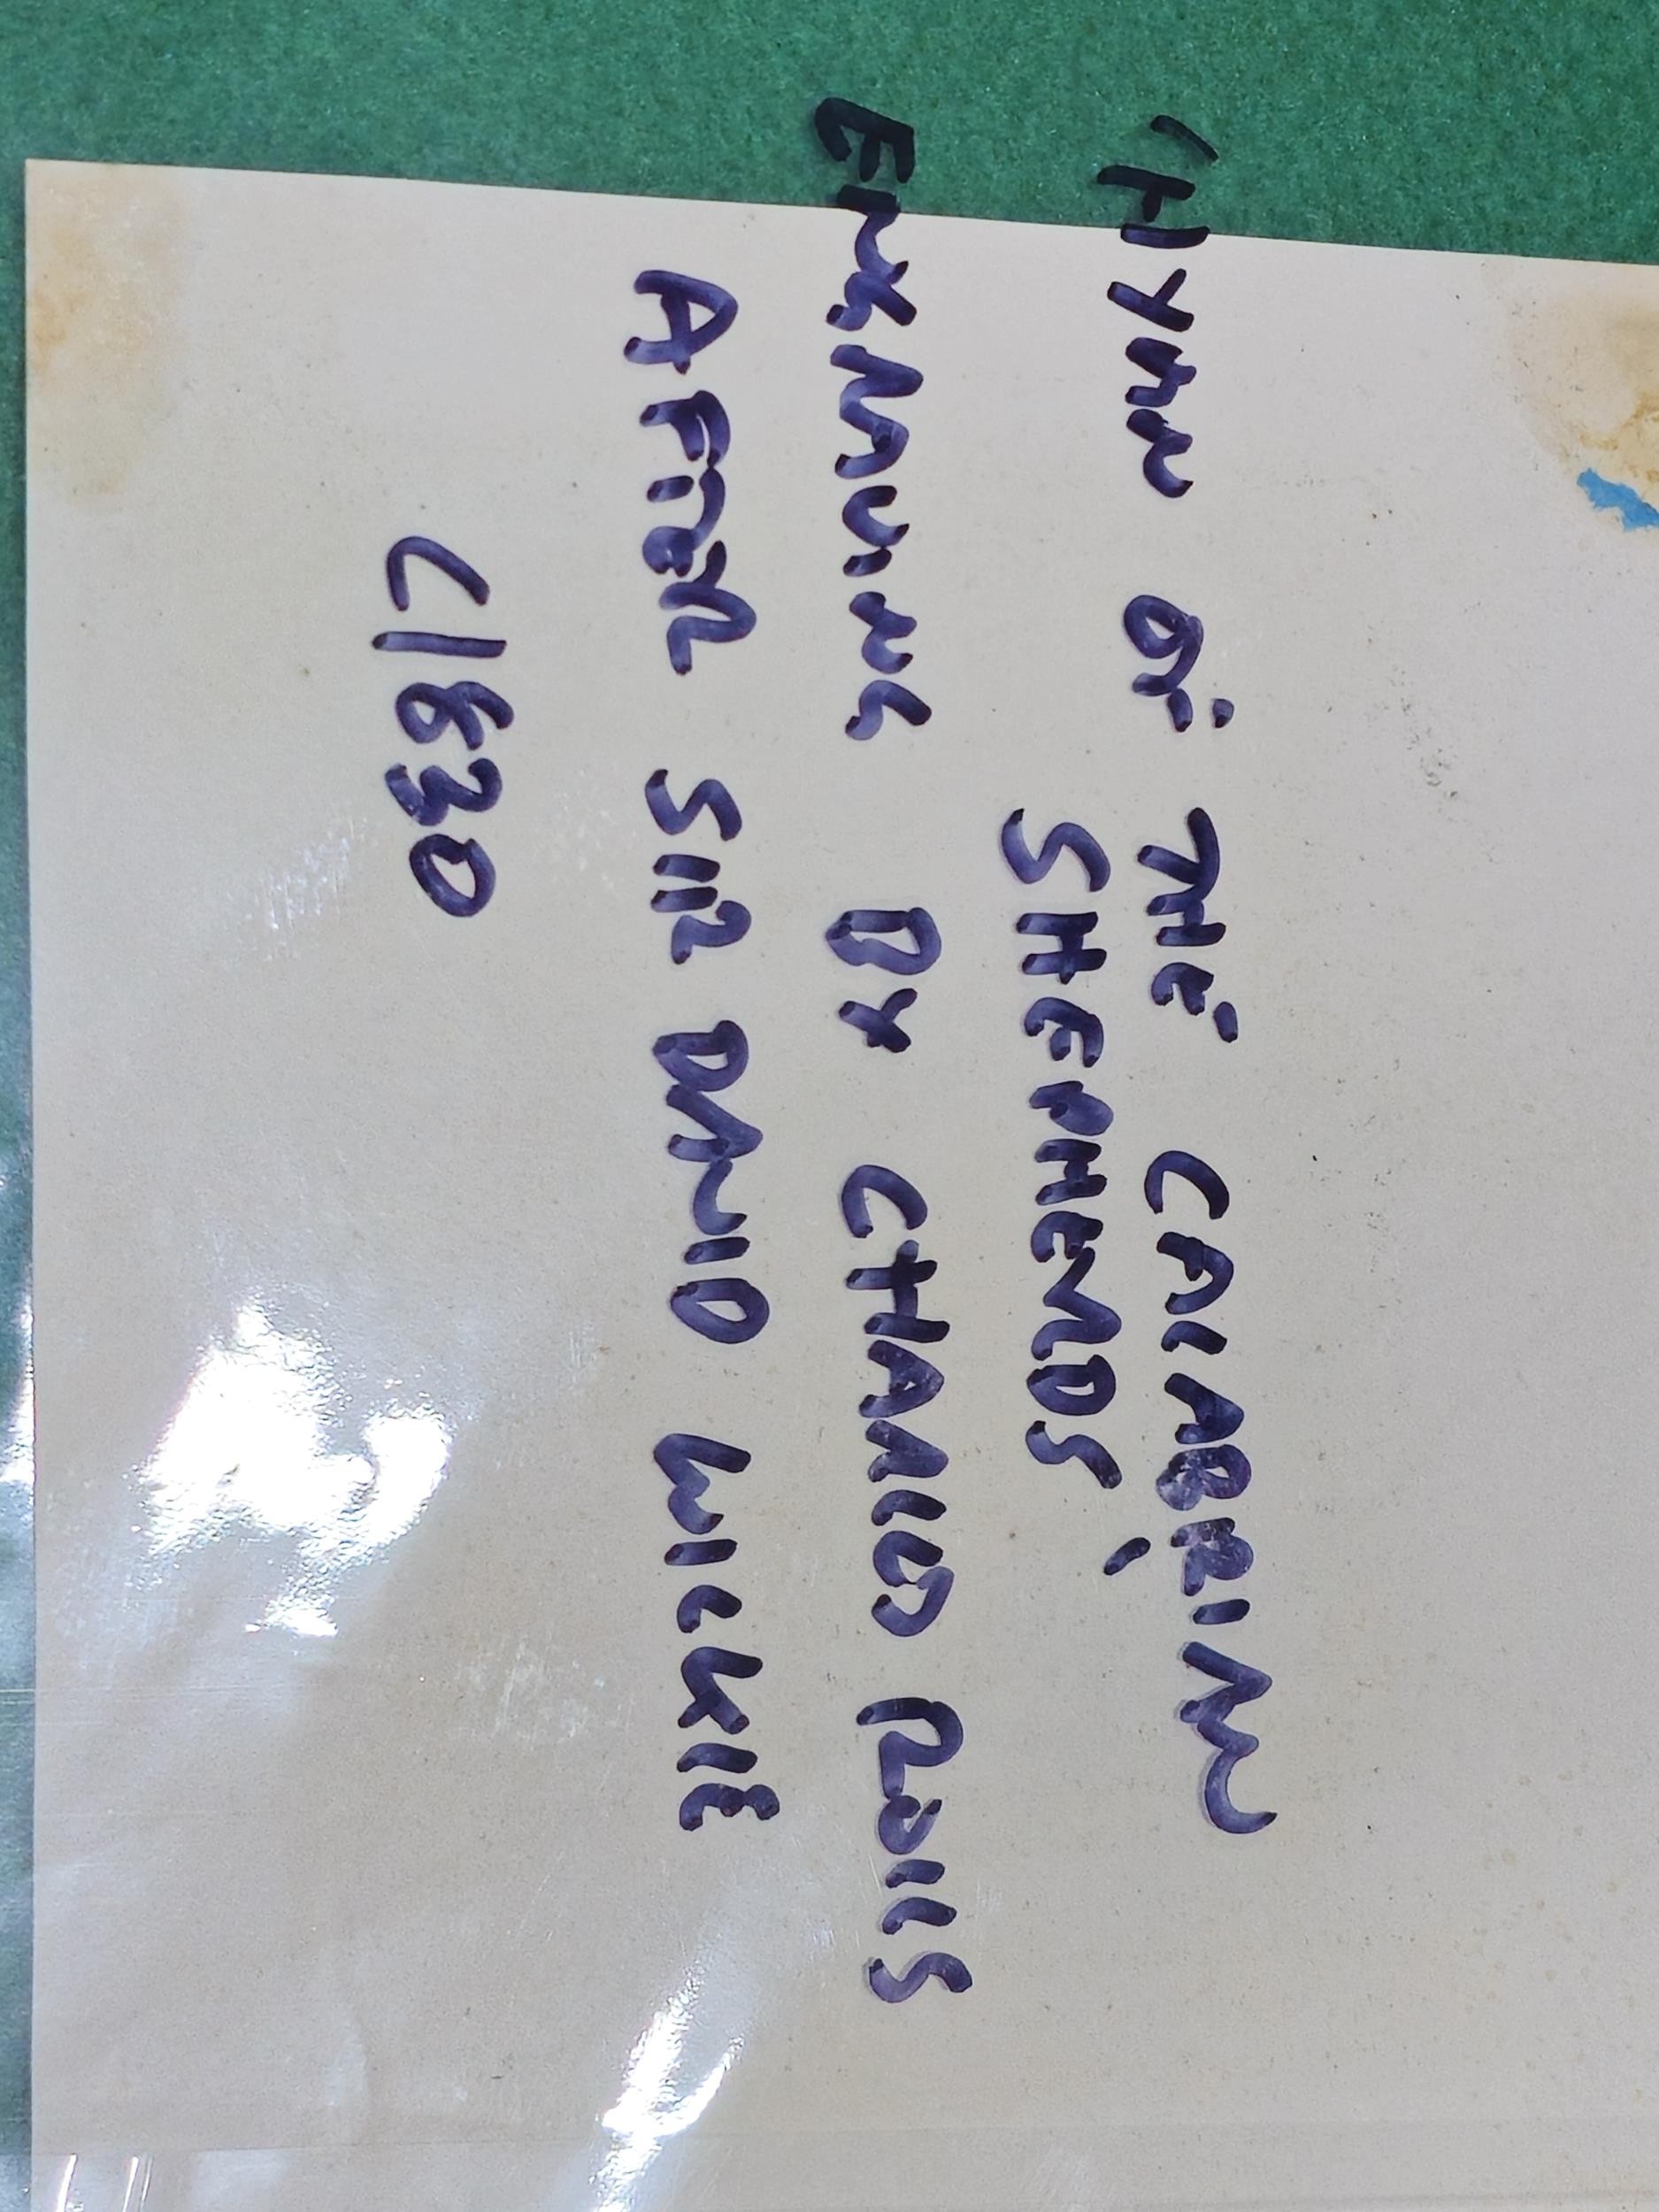 'HYMN OF THE CALABRIAN
SHEPHERDS'
ENGRAVING BY CHARLES ROLLS
AFTER SIR DAVID WILKIE
C1830